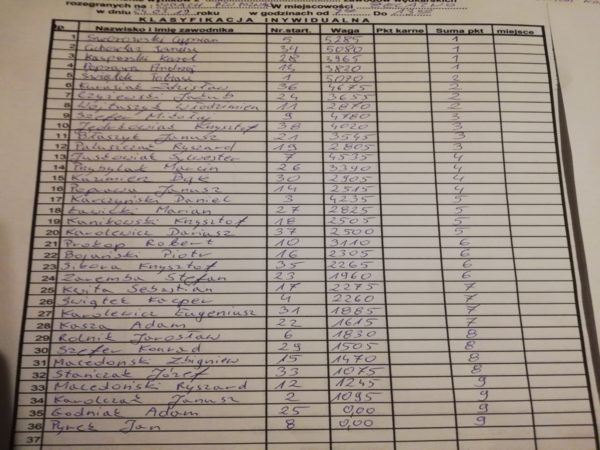 rozegranych na
w dniu roku w godzinach od do
KLASYFIKACJA INYWIDUALNA
lp Nazwisko i imię zawodnika Nr.start. Waga Pkt karne Suma pkt miejsce
1 5 5285 1
2 Janusz 34 5080 1
3 Kasperski Karol 28 3965 1
4 Poprawa Andrzej 13 3820 1
5 Świątek Tobiasz 1 5020 2
6 Zdzisław 36 4675 2
7 Czyżewski Jakub 24 3655 2
8 Włodzimierz 11 2870 2
9 Szefer Mikołaj 9 4780 3
10 Krzysztof 38 4020 3
11 Błaszyk Janusz 21 3545 3
12 Paluszczak Ryszard 19 2805 3
13 Sylwester 7 4535 4
14 Przybylak Marcin 26 3390 4
15 Kazimierz Bąk 30 2905 4
16 Poprawa Janusz 14 2515 4
17 Karczyński Daniel 3 4235 5
18 Ławicki Marian 27 2825 5
19 Kanikowski Krzysztof 18 2505 5
20 Karolewicz Dariusz 37 2500 5
21 Prokop Robert 10 3110 6
22 Bojański Piotr 16 2305 6
23 Sikora Krzysztof 35 2265 6
24 Zaremba Stefan 23 1960 6
25 Kęsita Sebastian 17 2275 7
26 Świątek Kacper 4 2260 7
27 Karolewicz Eugeniusz 31 1885 7
28 Kasza Adam 22 1615 7
29 Rolnik Jarosław 6 1830 8
30 Szefer Konrad 29 1505 8
31 Macedoński Zbigniew 15 1470 8
32 Stańczak Józef 33 1075 8
33 Macedoński Ryszard 12 1245 9
34 Karolczak Janusz 2 1095 9
35 Godniak Adam 25 0,00 9
36 Pyrek Jan 8 0,00 9
37